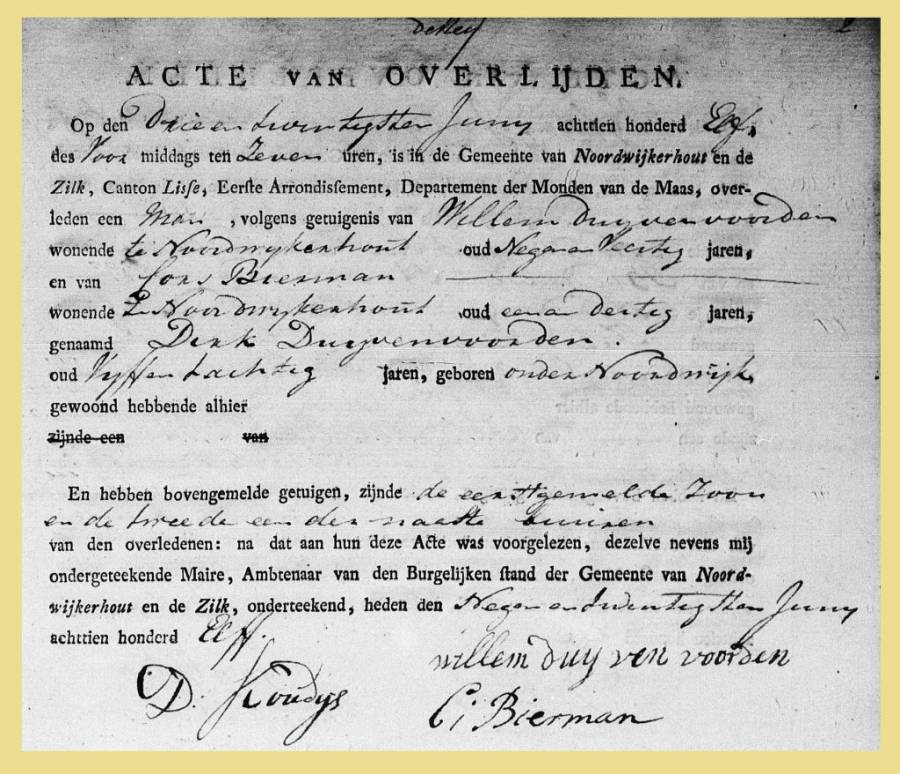 ACTE VAN OVERLIJDEN.
Op den Drie en twintigsten Juny achttien honderd Elf,
des Voor middags ten Zeven uren, is in de Gemeente van Noordwijkerhout en de
Zilk, Canton Lisse, Eerste Arrondissement, Departement der Monden van de Maas, over-
leden een Man, volgens getuigenis van Willem Duyvenvoorden
wonende te Noordwykerhout oud Negen en Veertig jaren,
en van Cors Bierman
wonende te Noordwykerhout oud een en dertig jaren,
genaamd Dirk Duyvenvoorden.
oud Vyf en tachtig jaren, geboren onder Noordwijk
gewoond hebbende alhier
zijnde een van
En hebben bovengemelde getuigen, zijnde de eerstgemelde Zoon
en de tweede een der naaste buuren
van den overledenen: na dat aan hun deze Acte was voorgelezen, dezelve nevens mij
ondergeteekende Maire, Ambtenaar van den Burgelijken stand der Gemeente van Noord-
wijkerhout en de Zilk, onderteekend, heden den Negen en twintigsten Juny
achttien honderd Elff.
willem duy ven voorden
D. Koudys
C: Bierman